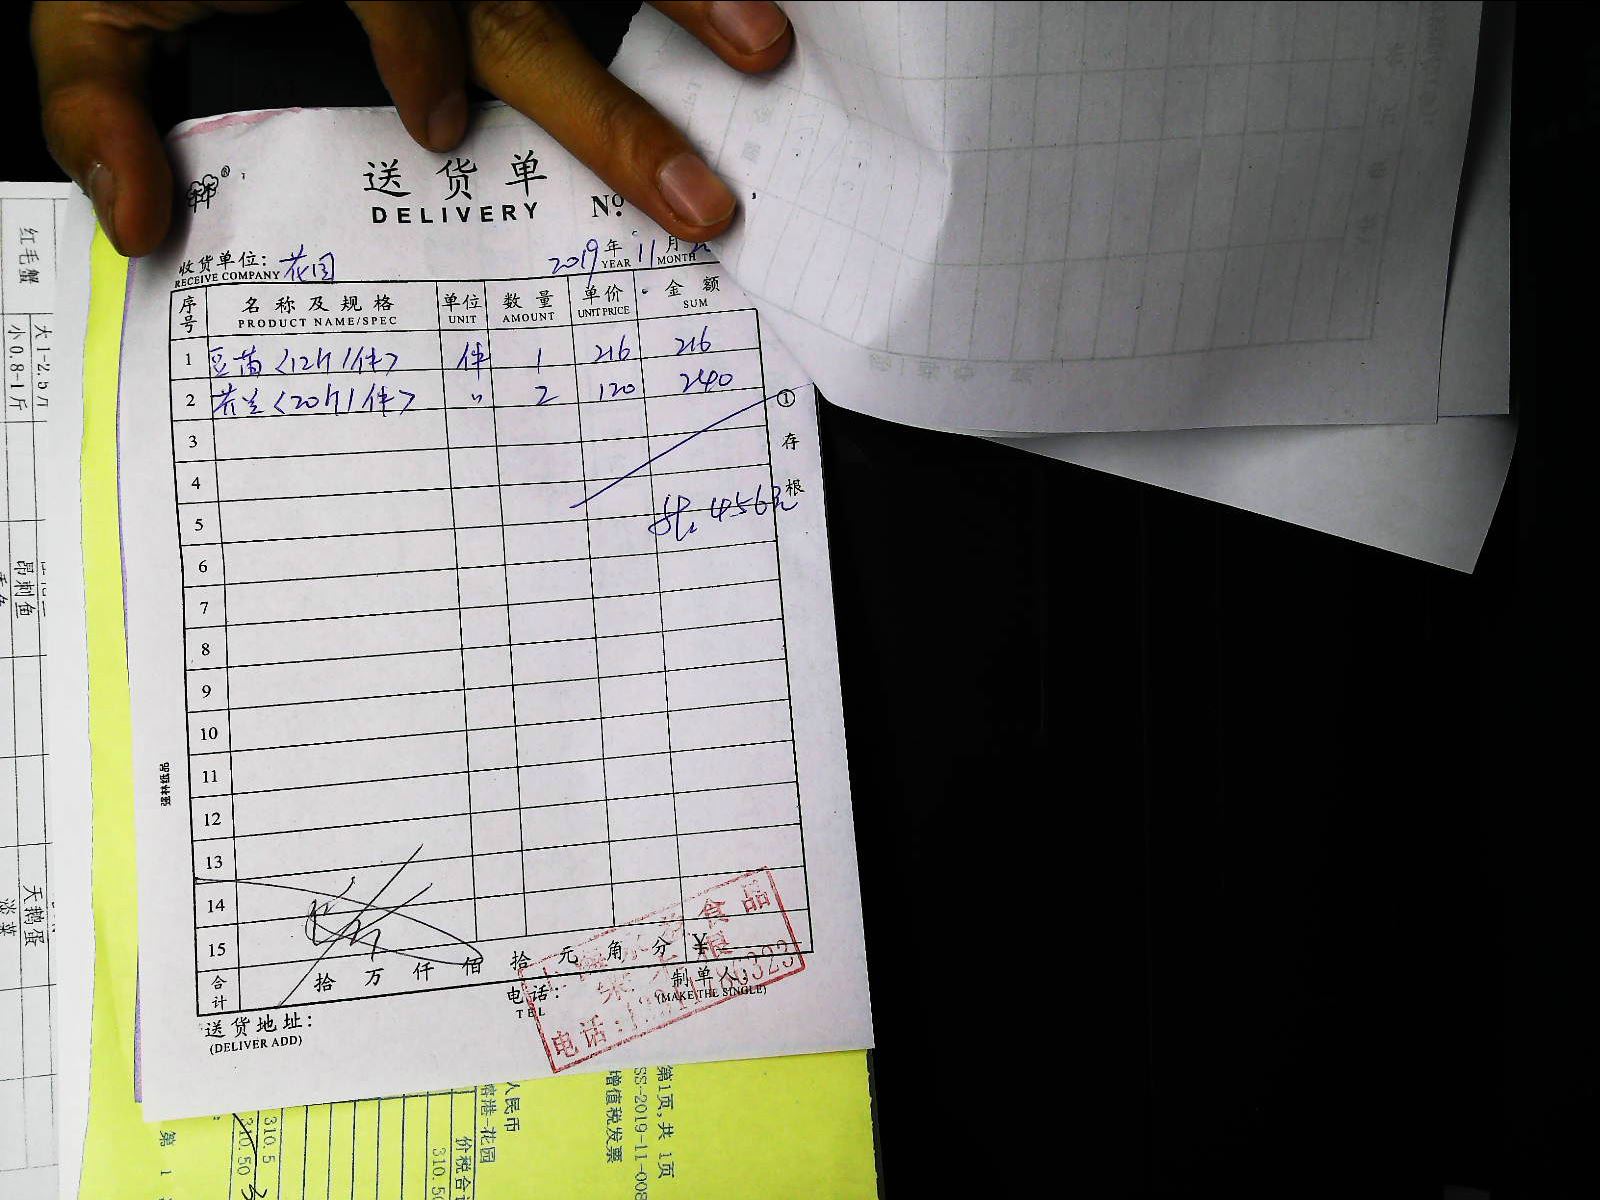 送货单
DELIVERY Nº.
收货单位: 花园 2019年 11月
RECEIVE COMPANY YEAR MONTH
序号 名称及规格 单位 数量 单价 金额
PRODUCT NAME/SPEC UNIT AMOUNT UNIT PRICE SUM
1 豆苗<12斤/件> 件 1 216 216
2 芥兰<20斤/件> 〃 2 120 240
3
4
5 456元
6
7
8
9
10
11
12
13
14
15
合计 拾 万 仟 佰 拾 元 角 分 ¥
电话: 制单人:
TEL (MAKE THE SINGLE)
送货地址:
(DELIVER ADD)
①存根
强林纸品
食品
电话:
红毛蟹
大1-2.5斤
小0.8-1斤
昂刺鱼
天鹅蛋
淡菜
第1页,共1页
SS-2019-11-008
增值税发票
人民币
-花园
价税合
310.5
310.50
310.50
第 1